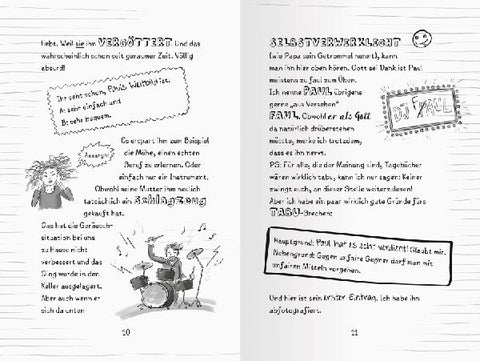 liebt. Weil sie ihn VERGÖTTERT. Und das
wahrscheinlich schon seit geraumer Zeit. Völlig
absurd!
Ihr seht schon, Pauls Weltbild ist:
A: sehr einfach und
B: sehr bequem.
Es erspart ihm zum Beispiel
die Mühe, einen echten
Beruf zu erlernen. Oder
einfach nur ein Instrument.
Obwohl seine Mutter ihm neulich
tatsächlich ein SCHLAGZEUG
gekauft hat.
Aaaargh!
Das hat die Geräusch-
situation bei uns
zu Hause nicht
verbessert und das
Ding wurde in den
Keller ausgelagert.
Aber auch wenn er
sich da unten
10
SELBSTVERWIRKLICHT
(wie Papa sein Getrommel nennt), kann
man ihn hier oben hören. Gott sei Dank ist Paul
meistens zu faul zum Üben.
Ich nenne PAUL übrigens
gerne „aus Versehen“
FAUL. Obwohl er als Gott
da natürlich drüberstehen
müsste, merke ich trotzdem,
dass es ihn nervt.
DJ FPAUL
PS: Für alle, die der Meinung sind, Tagebücher
wären wirklich tabu, kann ich nur sagen: Keiner
zwingt euch, an dieser Stelle weiterzulesen!
Aber ich habe ein paar wirklich gute Gründe fürs
TABU-Brechen:
Hauptgrund: Paul hat es echt verdient! Glaubt mir.
Nebengrund: Gegen unfaire Gegner darf man mit
unfairen Mitteln vorgehen.
Und hier ist sein erster Eintrag. Ich habe ihn
abfotografiert.
11